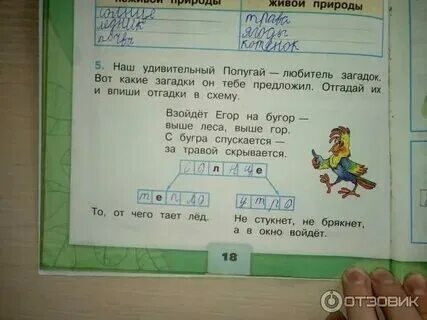 неживой природы живой природы
солнце трава
ледник ягоды
почва котёнок
5. Наш удивительный Попугай — любитель загадок.
Вот какие загадки он тебе предложил. Отгадай их
и впиши отгадки в схему.
Взойдёт Егор на бугор —
выше леса, выше гор.
С бугра спускается —
за травой скрывается.
солнце
тепло утро
То, от чего тает лёд. Не стукнет, не брякнет,
а в окно войдёт.
18
ОТЗОВИК